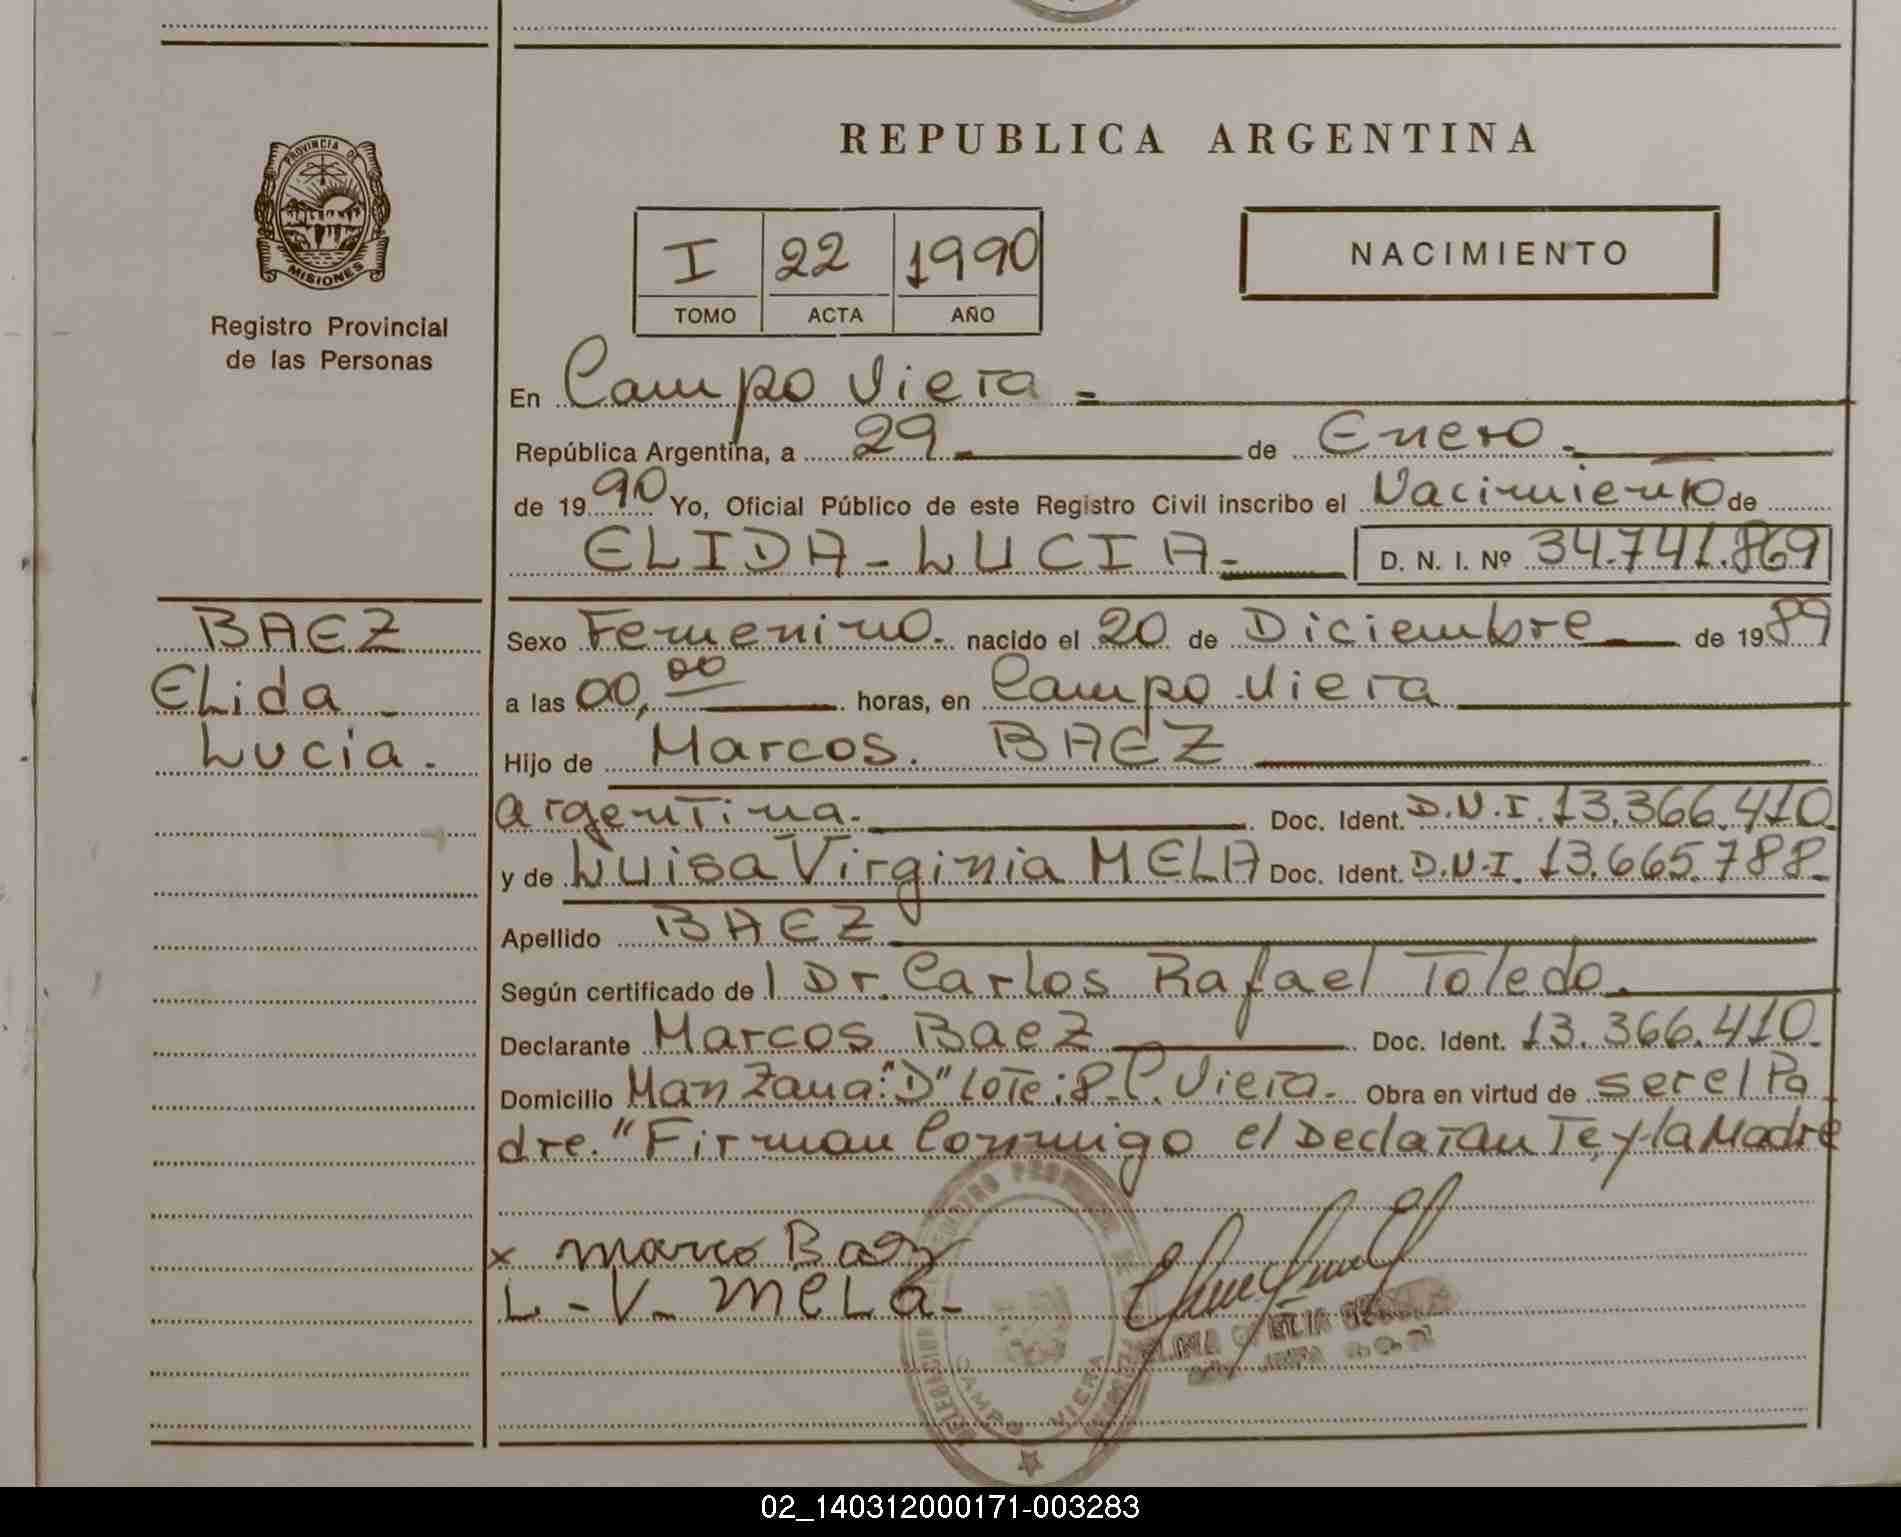 REPUBLICA ARGENTINA
PROVINCIA DE
MISIONES
Registro Provincial
de las Personas
I 22 1990
TOMO ACTA AÑO
NACIMIENTO
En Campo Viera =
República Argentina, a 29 de Enero
de 1990 Yo, Oficial Público de este Registro Civil inscribo el Nacimiento de
ELIDA - LUCIA - D. N. I. Nº 34.741.869
BAEZ
Elida
Lucia.
Sexo Femenino. nacido el 20 de Diciembre de 1989
a las 00,00 horas, en Campo Viera
Hijo de Marcos. BAEZ
argentina. Doc. Ident. D.N.I. 13.366.410
y de Luisa Virginia MELA Doc. Ident. D.N.I. 13.665.788
Apellido BAEZ
Según certificado de l Dr. Carlos Rafael Toledo.
Declarante Marcos Baez Doc. Ident. 13.366.410
Domicilio Manzana: "D" Lote: 8 - C. Viera. Obra en virtud de ser el Pa
dre. "Firman Conmigo el Declarante, y la Madre
x marco Baez
L - V - MELa -
REGISTRO PROVINCIAL DE
CAMPO VIERA
02_140312000171-003283